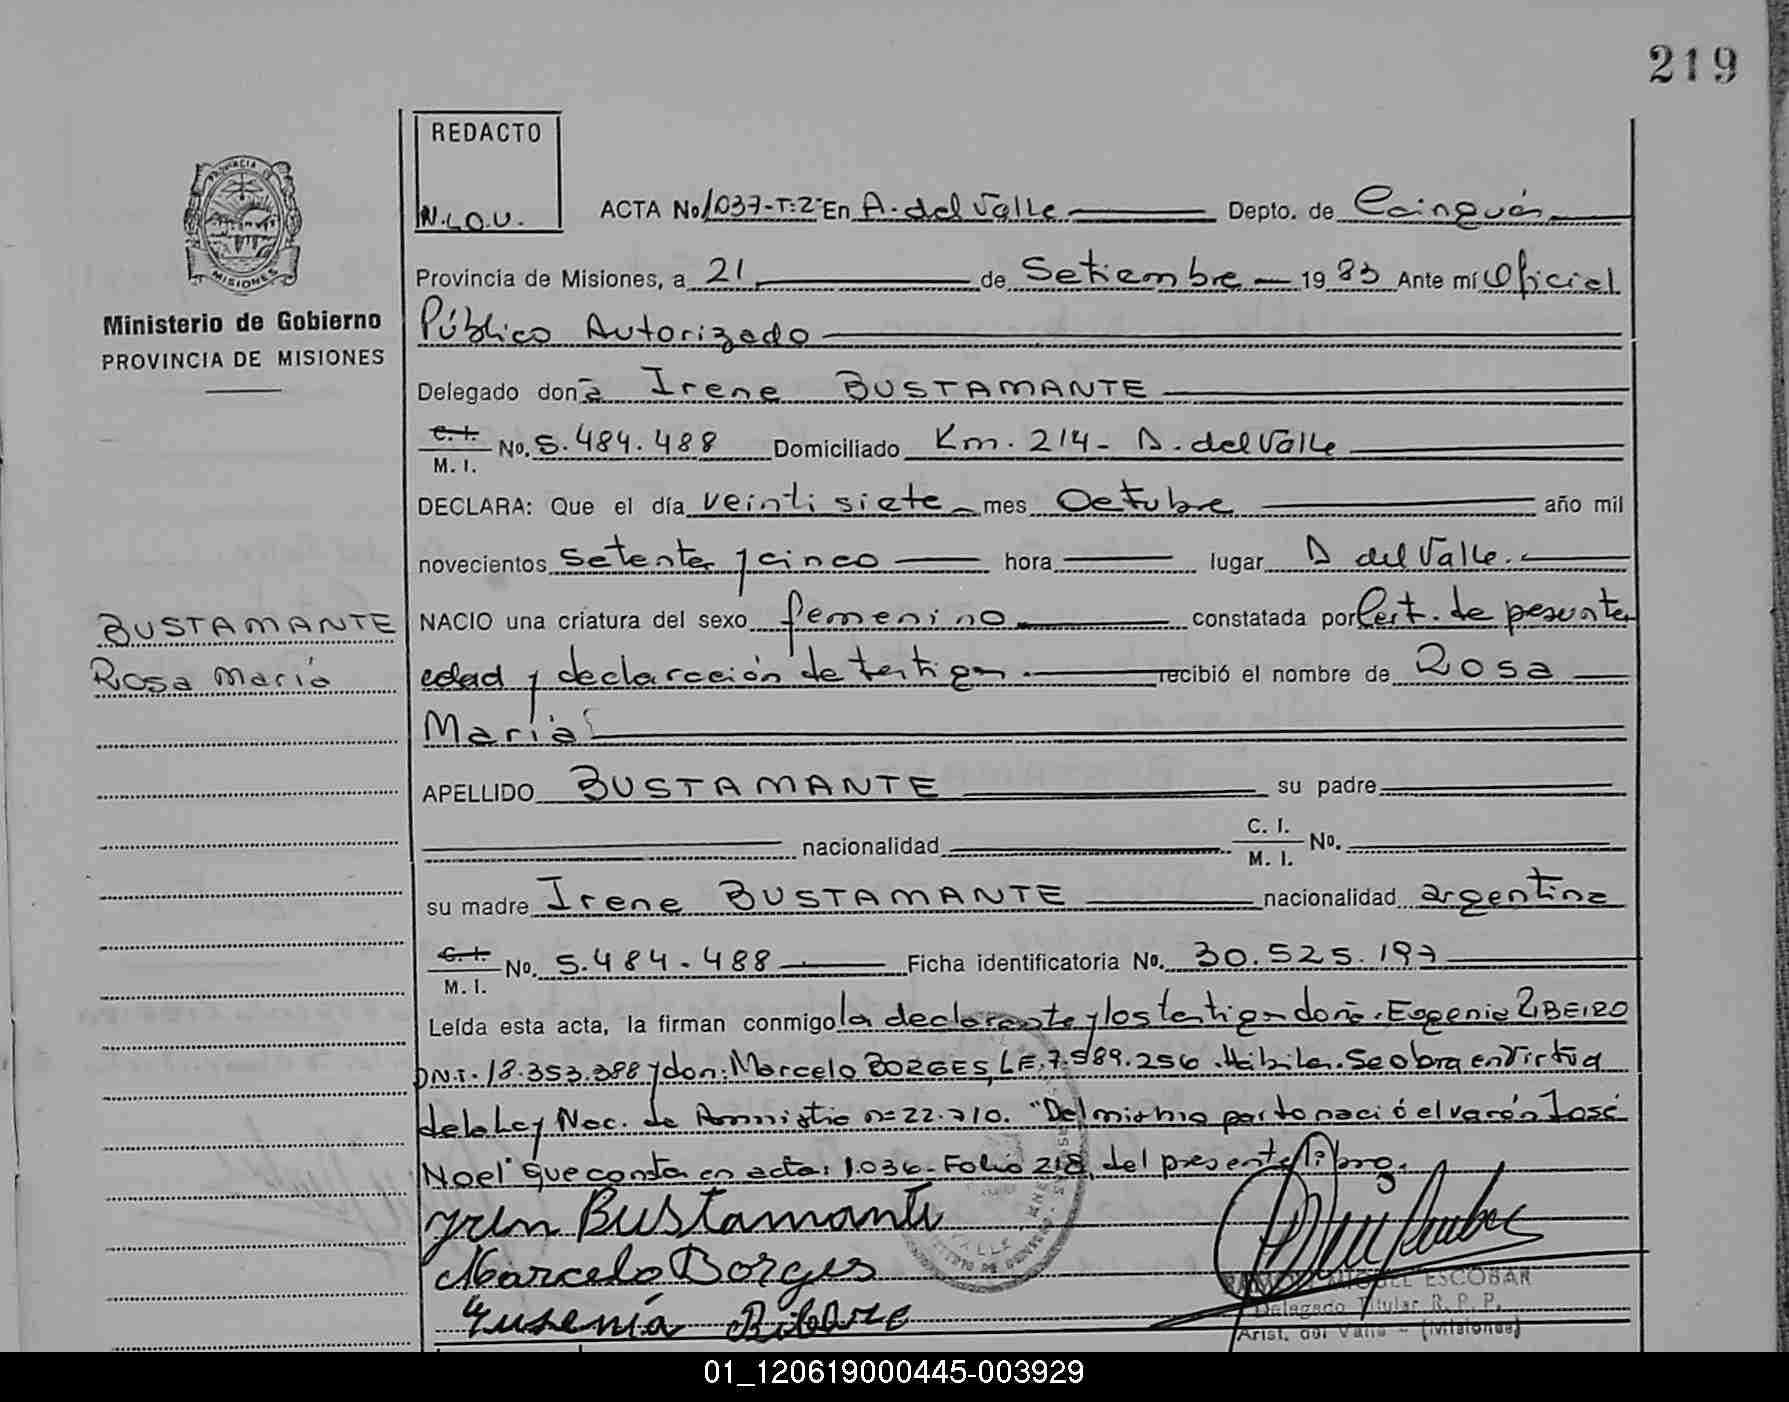 219
REDACTO
N.L.O.U.
ACTA No 1.037-T:2º En A. del Valle Depto. de Cainguás
PROVINCIA DE MISIONES
Provincia de Misiones, a 21 de Setiembre 1983 Ante mí Oficial
Ministerio de Gobierno
PROVINCIA DE MISIONES
Público Autorizado
Delegado doña Irene BUSTAMANTE
C. I. M. I. No. 5.484.488 Domiciliado Km. 214- A. del Valle
DECLARA: Que el día veintisiete mes Octubre año mil
novecientos setenta y cinco hora lugar A del Valle.
BUSTAMANTE
Rosa María
NACIO una criatura del sexo femenino constatada por Cert. de pesunta
edad y declaración de testigos. recibió el nombre de Rosa
María
APELLIDO BUSTAMANTE su padre
nacionalidad C. I. M. I. No.
su madre Irene BUSTAMANTE nacionalidad argentina
C. I. M. I. No. 5.484.488 Ficha identificatoria No. 30.525.197
Leída esta acta, la firman conmigo la declarante y los testigos doña: Eugenia RIBEIRO
DN.I. 18.353.388 y don: Marcelo BORGES, LE. 7.589.256. Hábiles. Se obra en virtud
de la Ley Nac. de Amnistia nº 22.710. "Del mismo parto nació el varón José
Noel" que consta en acta: 1.036- Folio 218, del presente libro.
Irene Bustamante
Marcelo Borges
RAMON MIGUEL ESCOBAR
Delegado Titular R. P. P.
Arist. del Valle - (Misiones)
01_120619000445-003929